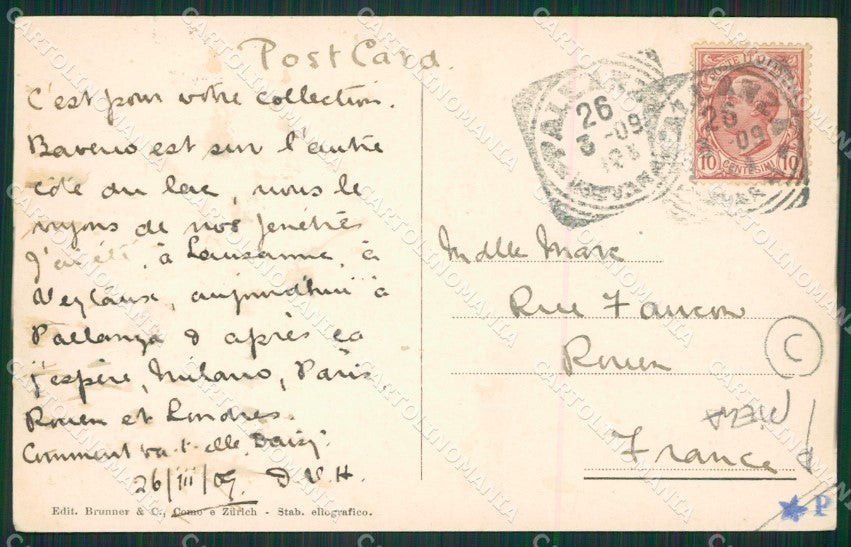 Post Card.
C'est pour votre collection.
Baveno est sur l'autre
côté du lac, nous le
voyons de nos fenêtres
J'ai été, à Lausanne, à
Veytaux, aujourd'hui à
Pallanza & après ça
j'espère, Milano, Paris,
Rouen et Londres.
Comment va-t-elle, Daisy.
26/III/09. D V H.
Edit. Brunner & C., Como e Zürich - Stab. eliografico.
26
3 -09
PALLANZA
26
-09
10 CENTESIMI 10
Mdlle Marc
Rue Faucon
Rouen
France
C
P
CARTOLINOMANIA